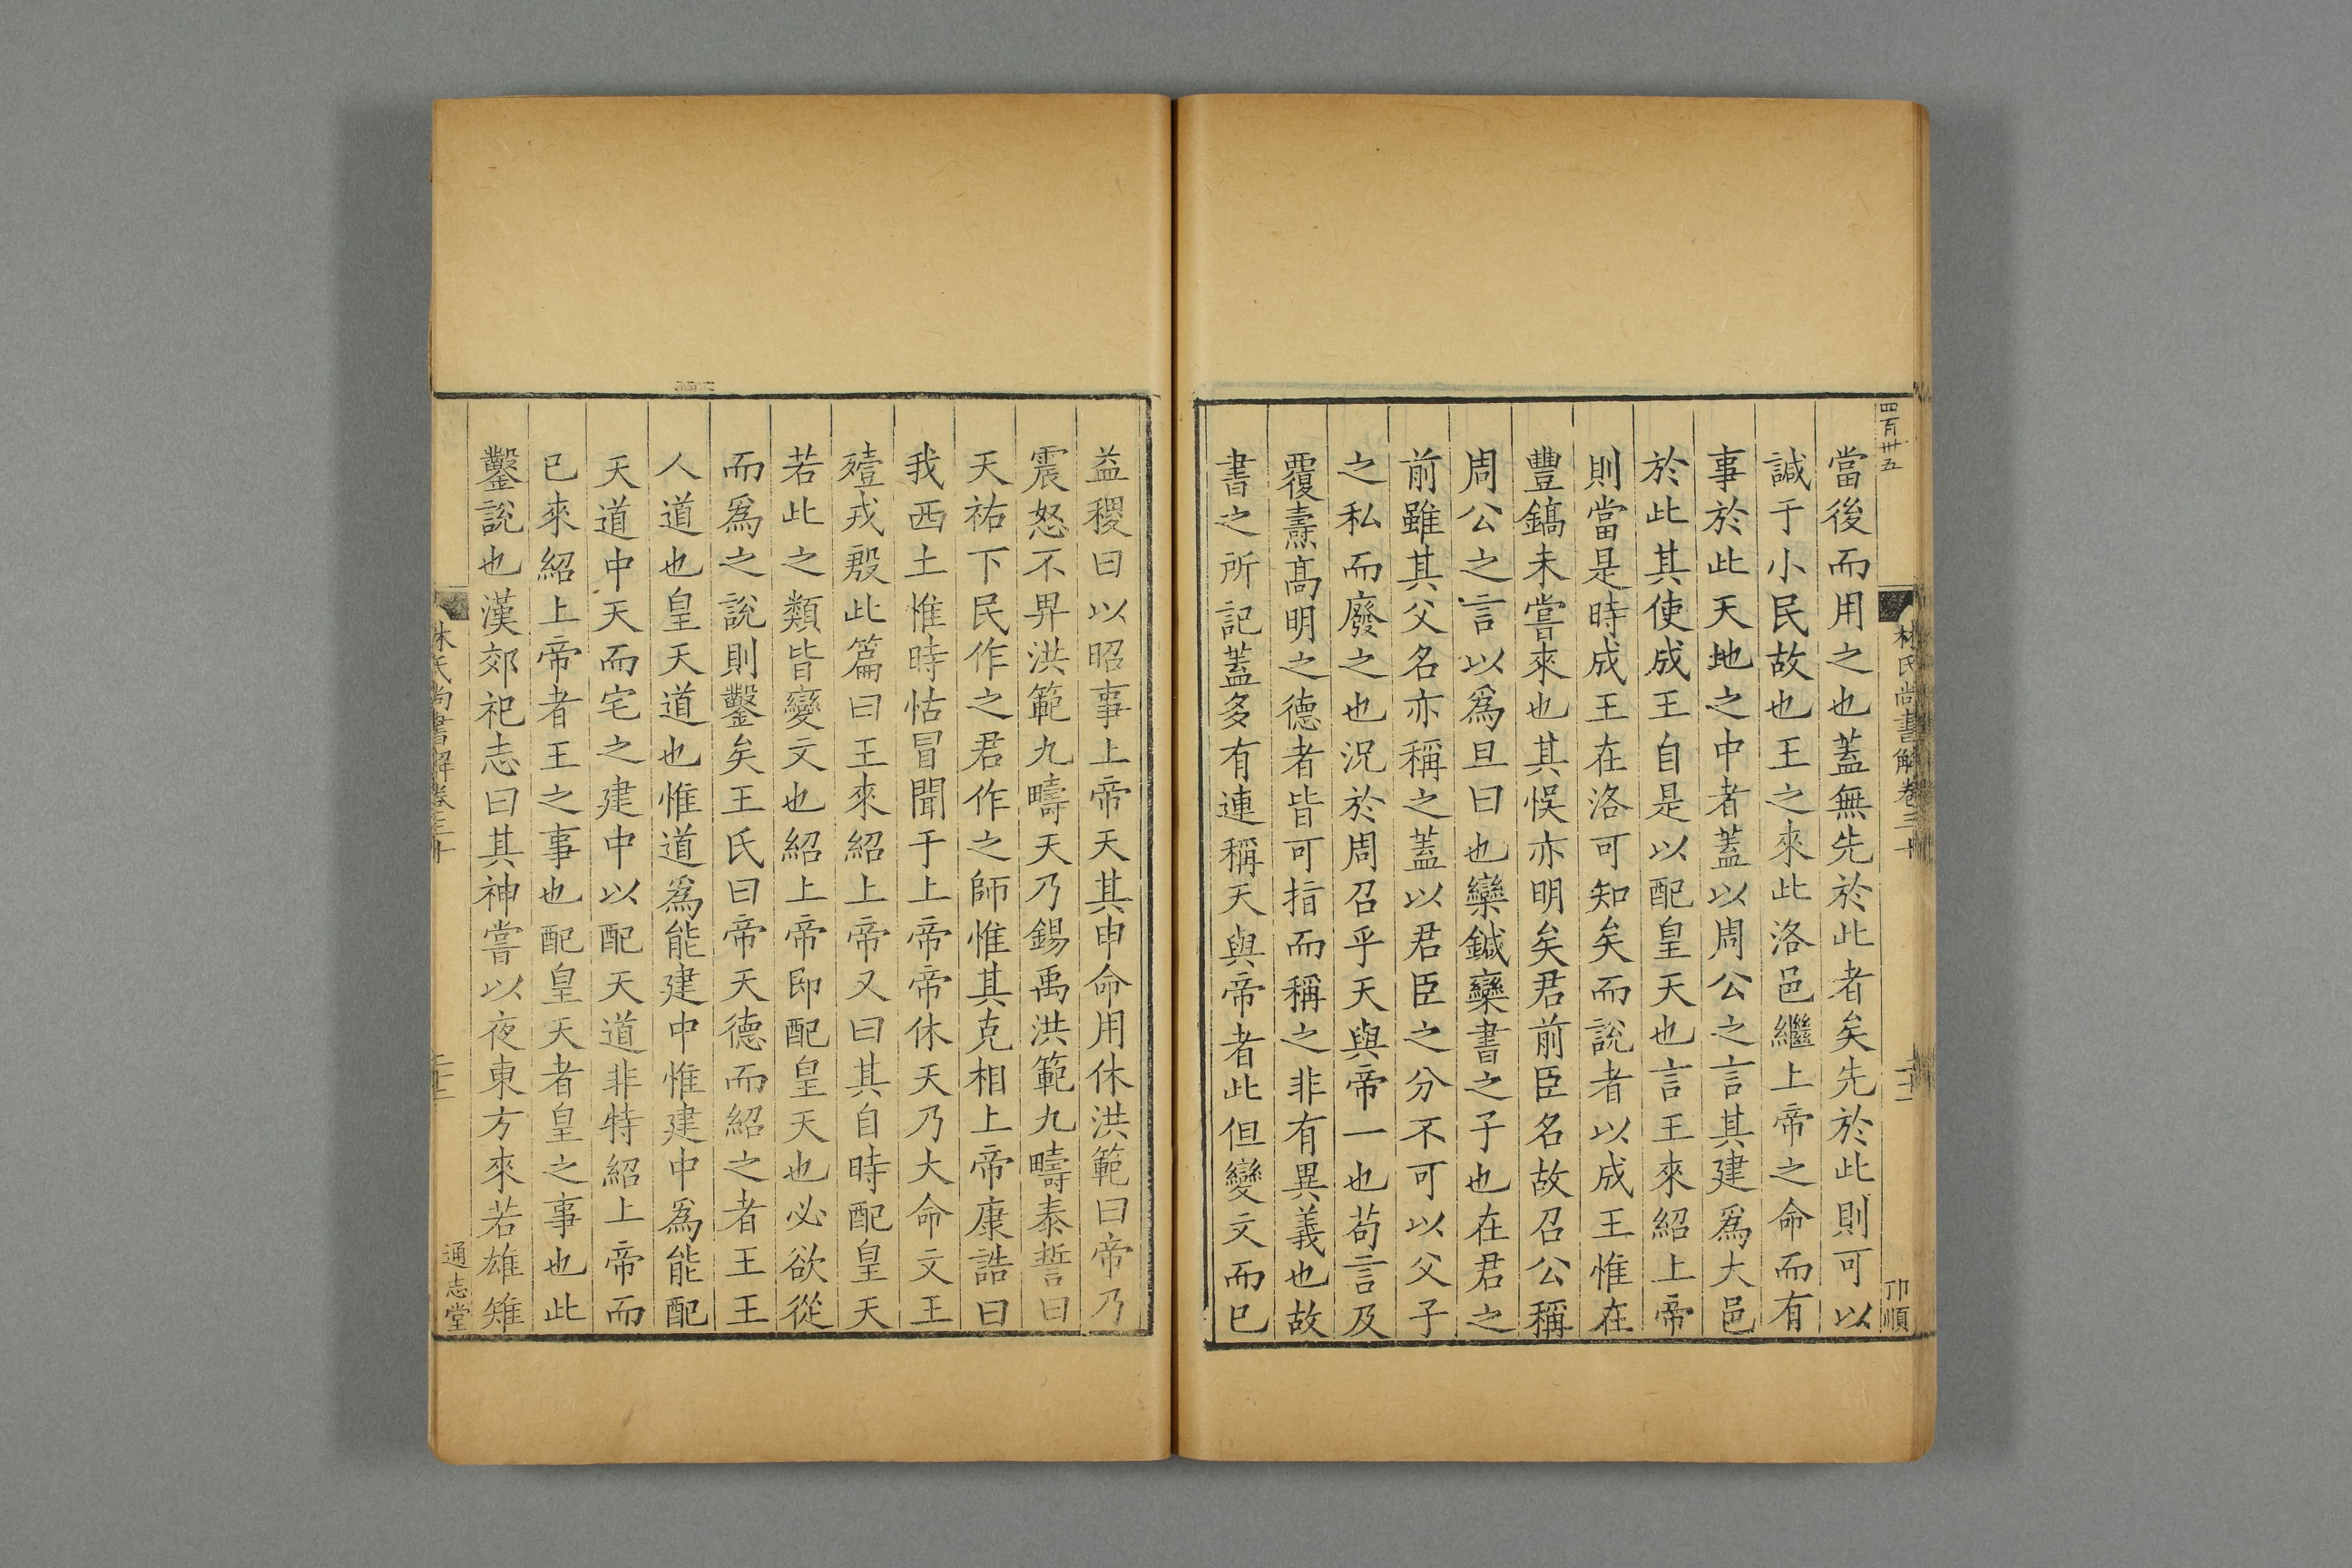 四百卅五
林氏尚書解卷三十
當後而用之也蓋無先於此者矣先於此則可以
諴于小民故也王之來此洛邑繼上帝之命而有
事於此天地之中者蓋以周公之言其建爲大邑
於此其使成王自是以配皇天也言王來紹上帝
則當是時成王在洛可知矣而說者以成王惟在
豐鎬未嘗來也其悞亦明矣君前臣名故召公稱
周公之言以爲旦曰也欒鍼欒書之子也在君之
前雖其父名亦稱之蓋以君臣之分不可以父子
之私而廢之也況於周召乎天與帝一也苟言及
覆燾高明之德者皆可指而稱之非有異義也故
書之所記蓋多有連稱天與帝者此但變文而已
益稷曰以昭事上帝天其申命用休洪範曰帝乃
震怒不畀洪範九疇天乃錫禹洪範九疇泰誓曰
天祐下民作之君作之師惟其克相上帝康誥曰
我西土惟時怙冒聞于上帝帝休天乃大命文王
殪戎殷此篇曰王來紹上帝又曰其自時配皇天
若此之類皆變文也紹上帝即配皇天也必欲從
而爲之說則鑿矣王氏曰帝天德而紹之者王王
人道也皇天道也惟道爲能建中惟建中爲能配
天道中天而宅之建中以配天道非特紹上帝而
已來紹上帝者王之事也配皇天者皇之事也此
鑿說也漢郊祀志曰其神嘗以夜東方來若雄雉
林氏尚書解卷三十
通志堂